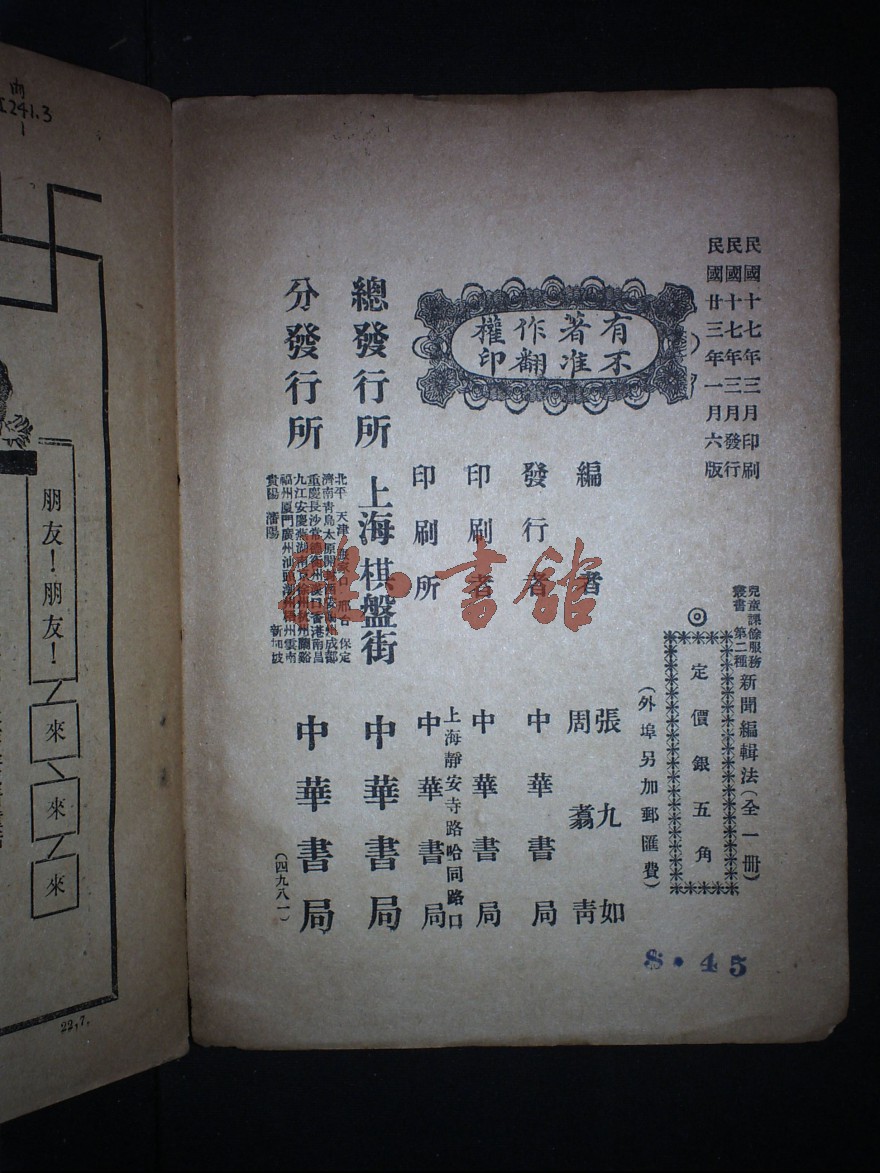 民國十七年三月印刷
民國十七年三月發行
民國廿三年一月六版
兒童課餘服務
叢書 第二種
新聞編輯法(全一冊)
◎定價銀五角
(外埠另加郵匯費)
有著作權
不准翻印
編者 張九如
周翥青
發行者 中華書局
印刷者 中華書局
上海靜安寺路哈同路口
印刷所 中華書局
總發行所 上海棋盤街 中華書局
分發行所
北平 天津 邢台 保定
濟南 青島 太原 成都
重慶 長沙 常德 衡州 漢口 香港 南昌
九江 安慶 蕪湖 南京 徐州 杭州 蘭谿
福州 廈門 廣州 汕頭 潮州 雲南
貴陽 瀋陽 新加坡
中華書局
(四九八一)
8·45
書館
內
I241.3
1
朋友!朋友!
來
來
來
22,7.